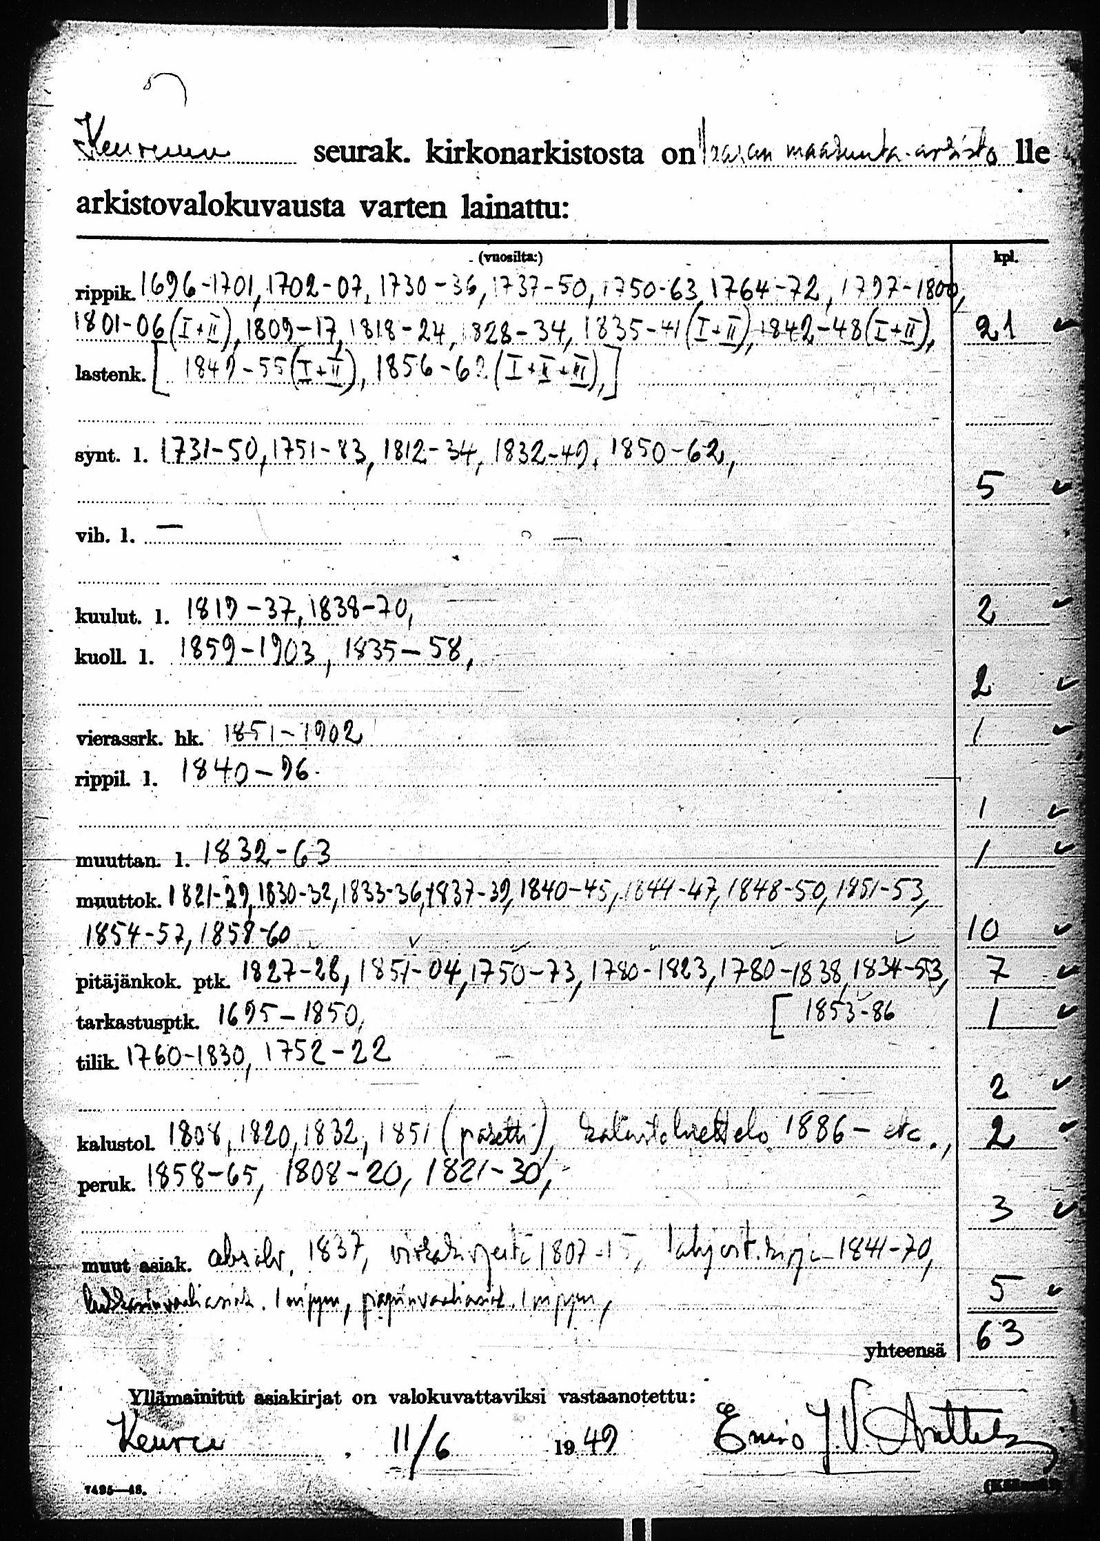 Keuruun seurak. kirkonarkistosta on Vaasan maakunta-arkisto lle
arkistovalokuvausta varten lainattu:
(vuosilta:) kpl.
rippik. 1696-1701, 1702-07, 1730-36, 1737-50, 1750-63, 1764-72, 1797-1800,
1801-06 (I+II), 1809-17, 1818-24, 1828-34, 1835-41 (I+II), 1842-48 (I+II), 21
lastenk. [1849-55 (I+II), 1856-62 (I+II+III),]
synt. l. 1731-50, 1751-83, 1812-34, 1832-49, 1850-62,
5
vih. l. —
kuulut. l. 1819-37, 1838-70, 2
kuoll. l. 1859-1903, 1835-58,
2
vierassrk. hk. 1851-1902 1
rippil. l. 1840-96.
1
muuttan. l. 1832-63 1
muuttok. 1821-29, 1830-32, 1833-36, 1837-39, 1840-45, 1844-47, 1848-50, 1851-53,
1854-57, 1858-60 10
pitäjänkok. ptk. 1827-28, 1851-04, 1750-73, 1780-1823, 1780-1838, 1834-53, 7
tarkastusptk. 1695-1850, [1853-86 1
tilik. 1760-1830, 1752-22
2
kalustol. 1808, 1820, 1832, 1851 (), kalustoluettelo 1886- etc., 2
peruk. 1858-65, 1808-20, 1821-30,
3
muut asiak. 1837, 1807-15, 1841-70,
1 nippu, 1 nippu, 5
yhteensä 63
Yllämainitut asiakirjat on valokuvattaviksi vastaanotettu:
Keuruu . 11/6 1949
7495—48.